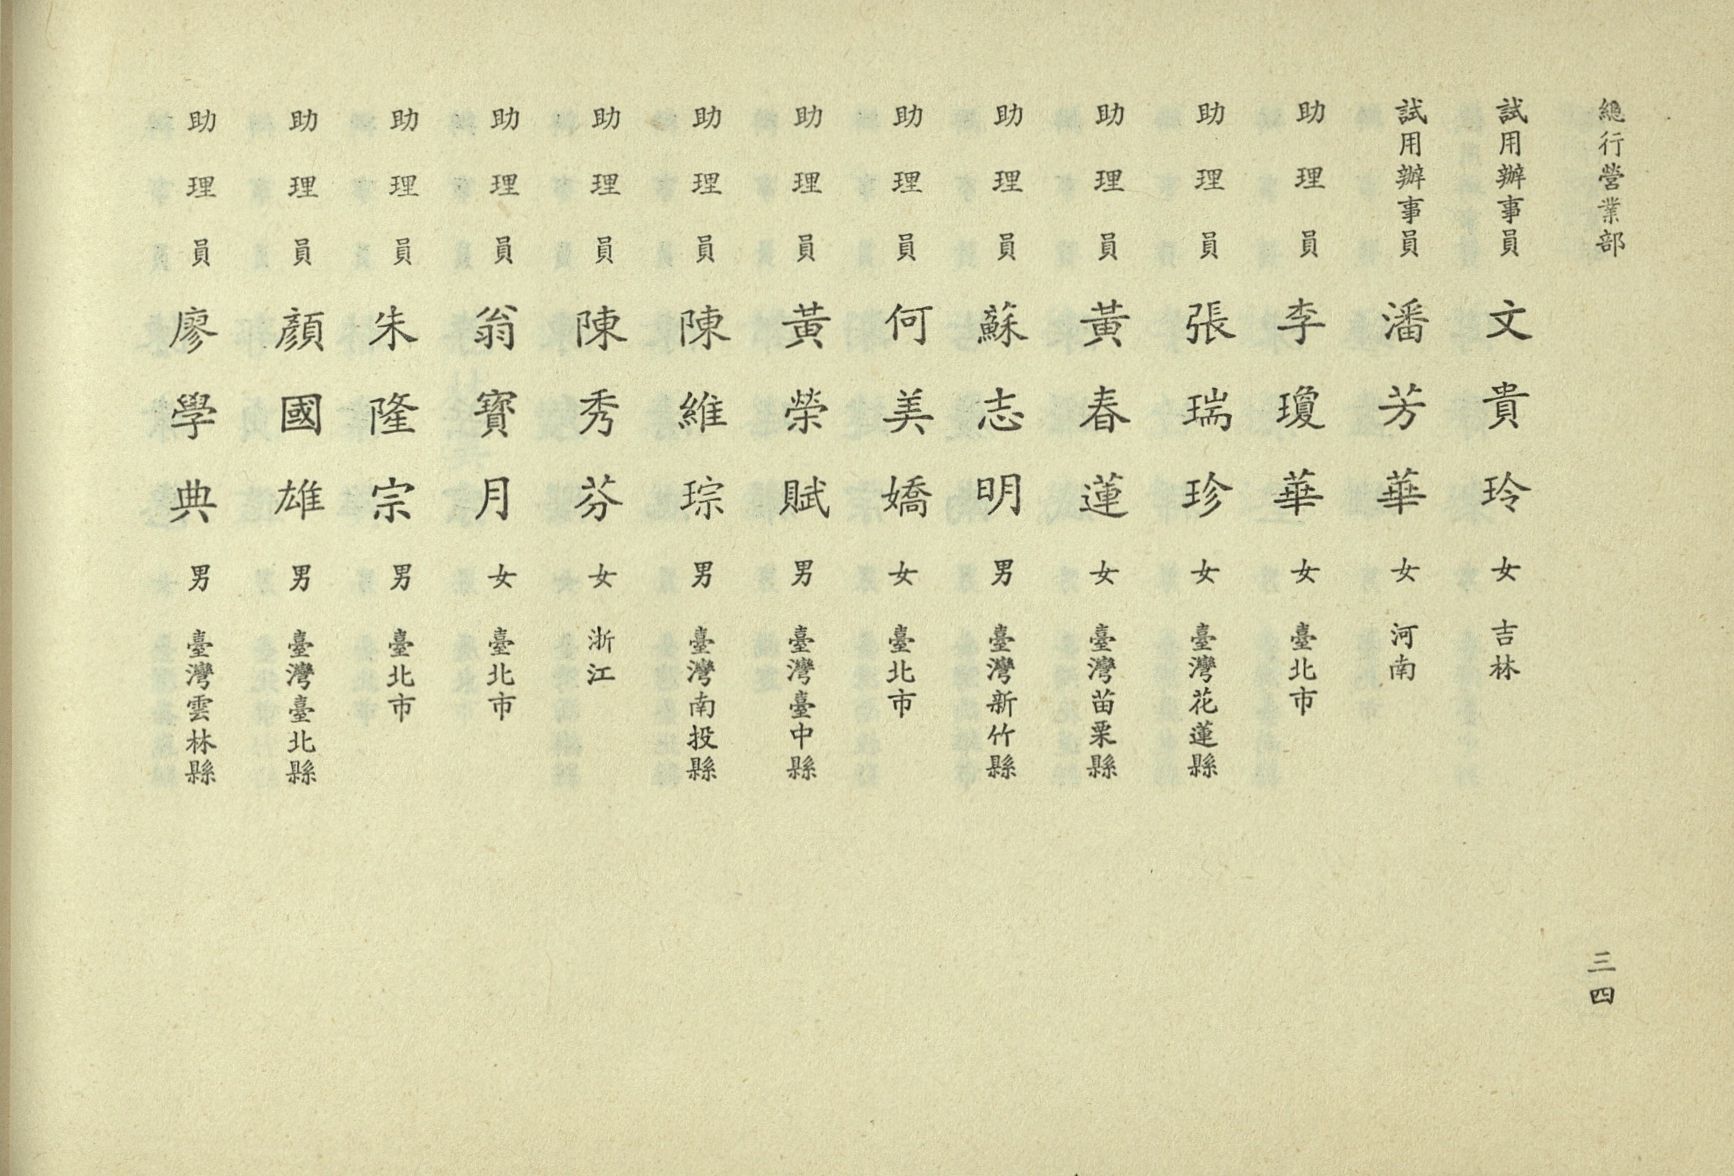 總行營業部
三四
試用辦事員 文貴玲 女 吉林
試用辦事員 潘芳華 女 河南
助理員 李瓊華 女 臺北市
助理員 張瑞珍 女 臺灣花蓮縣
助理員 黃春蓮 女 臺灣苗栗縣
助理員 蘇志明 男 臺灣新竹縣
助理員 何美嬌 女 臺北市
助理員 黃榮賦 男 臺灣臺中縣
助理員 陳維琮 男 臺灣南投縣
助理員 陳秀芬 女 浙江
助理員 翁寶月 女 臺北市
助理員 朱隆宗 男 臺北市
助理員 顏國雄 男 臺灣臺北縣
助理員 廖學典 男 臺灣雲林縣